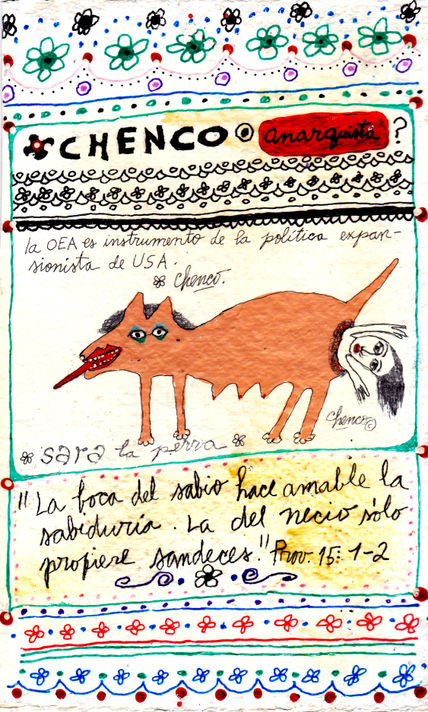 CHENCO anarquista ?
la OEA es instrumento de la política expan-
sionista de USA.
Chenco.
Chenco ©
sara la perra
"La boca del sabio hace amable la
sabiduría. La del necio sólo
profiere sandeces." Prov. 15: 1-2